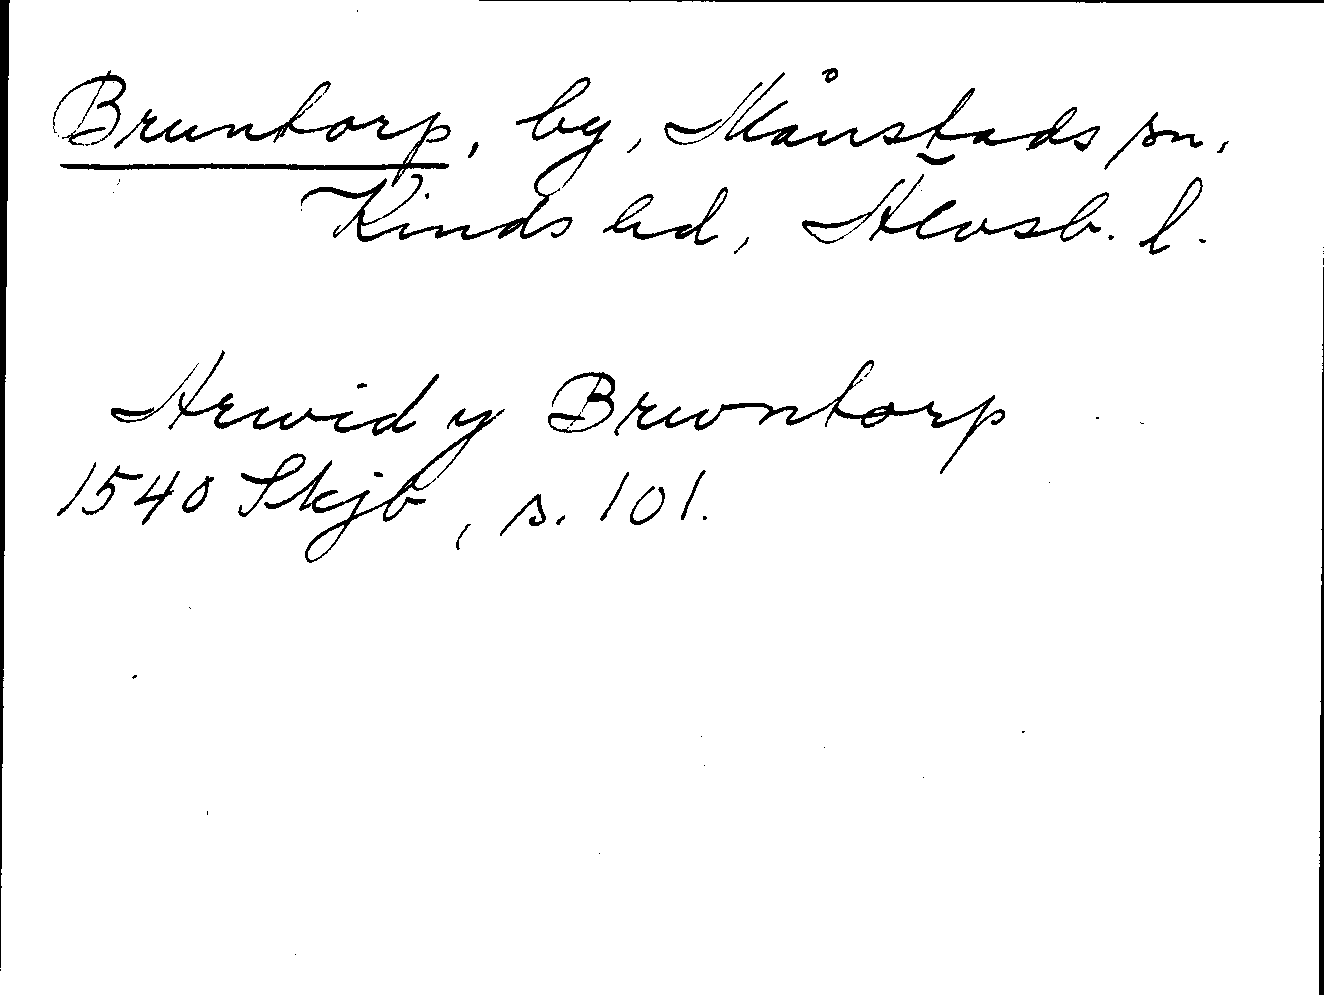 Bruntorp, by, Månstads sn,
Kinds hd, Älvsb. l.
Arwid y Brwntorp
1540 Skjb, s. 101.